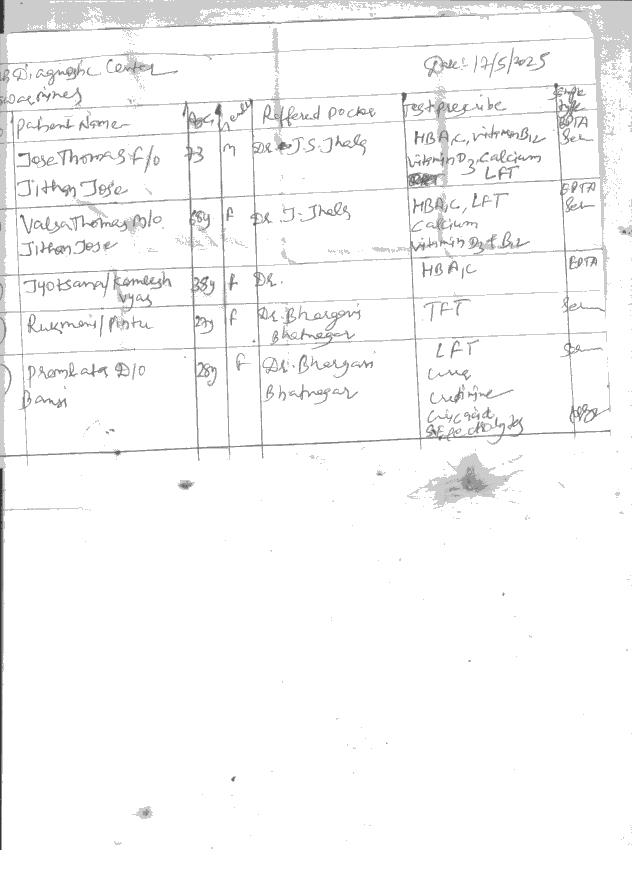 Diagnostic Center
Date:- 17/5/2025
Patient Name Age Gender Reffered Doctor Test prescribe
Jose Thomas F/o 73 M Dr. J.S. Jhala HBA1C, vitamin B12 EDTA
Jithen Jose vitamin D3, Calcium
LFT
Valsa Thomas M/o 68y F Dr. J. Jhala HBA1C, LFT EDTA
Jithen Jose Calcium
vitamin D3 & B12
Jyotsana/Kamlesh 38y F Dr. HBA1C EDTA
vyas
Rukmani/Pintu 27y F Dr. Bhargavi TFT
Bhatnagar
D/o 28y F Dr. Bhargavi LFT
Bansi Bhatnagar urea
Creatinine
uric acid